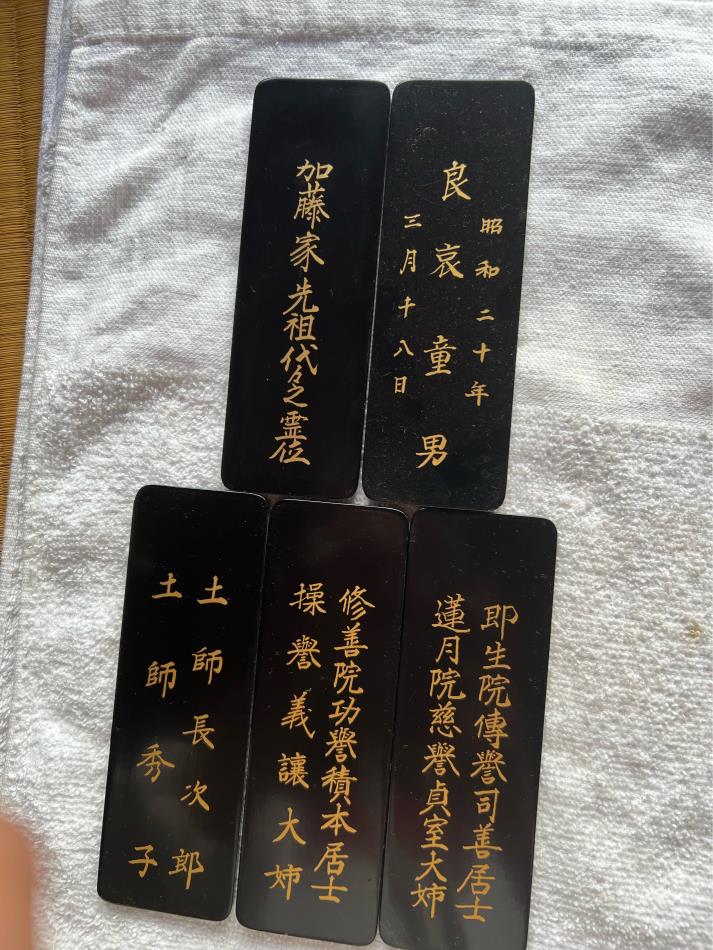 昭和二十年
良哀童男
三月十八日
加藤家先祖代々之霊位
即生院傳譽司善居士
蓮月院慈譽貞室大姉
修善院功譽積本居士
操譽義讓大姉
土師長次郎
土師秀子